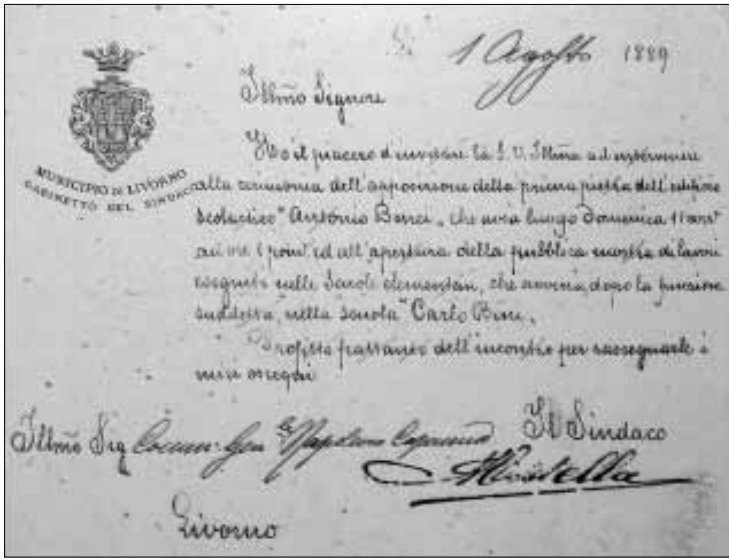 Li 1 Agosto 1889
MUNICIPIO DI LIVORNO
GABINETTO DEL SINDACO
Illmo Signore
Ho il piacere d'invitare la S. V. Illma ad intervenire
alla cerimonia dell'apposizione della prima pietra dell'edifizio
scolastico "Antonio Benci", che avrà luogo Domenica 11
ed all'apertura della pubblica mostra di lavori
eseguiti nelle Scuole elementari, che avverrà, dopo la funzione
suddetta, nella scuola "Carlo Bini".
Profitto dell'incontro per rassegnarle i
miei ossequi
Illmo Sig Comm: Gen le Napoleone Il Sindaco
Livorno